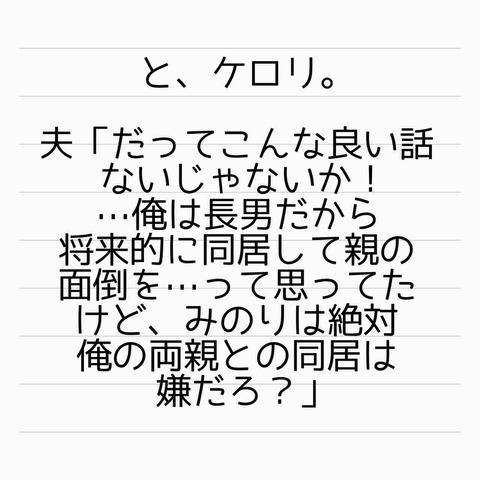 と、ケロリ。
夫「だってこんな良い話
ないじゃないか！
…俺は長男だから
将来的に同居して親の
面倒を…って思ってた
けど、みのりは絶対
俺の両親との同居は
嫌だろ？」